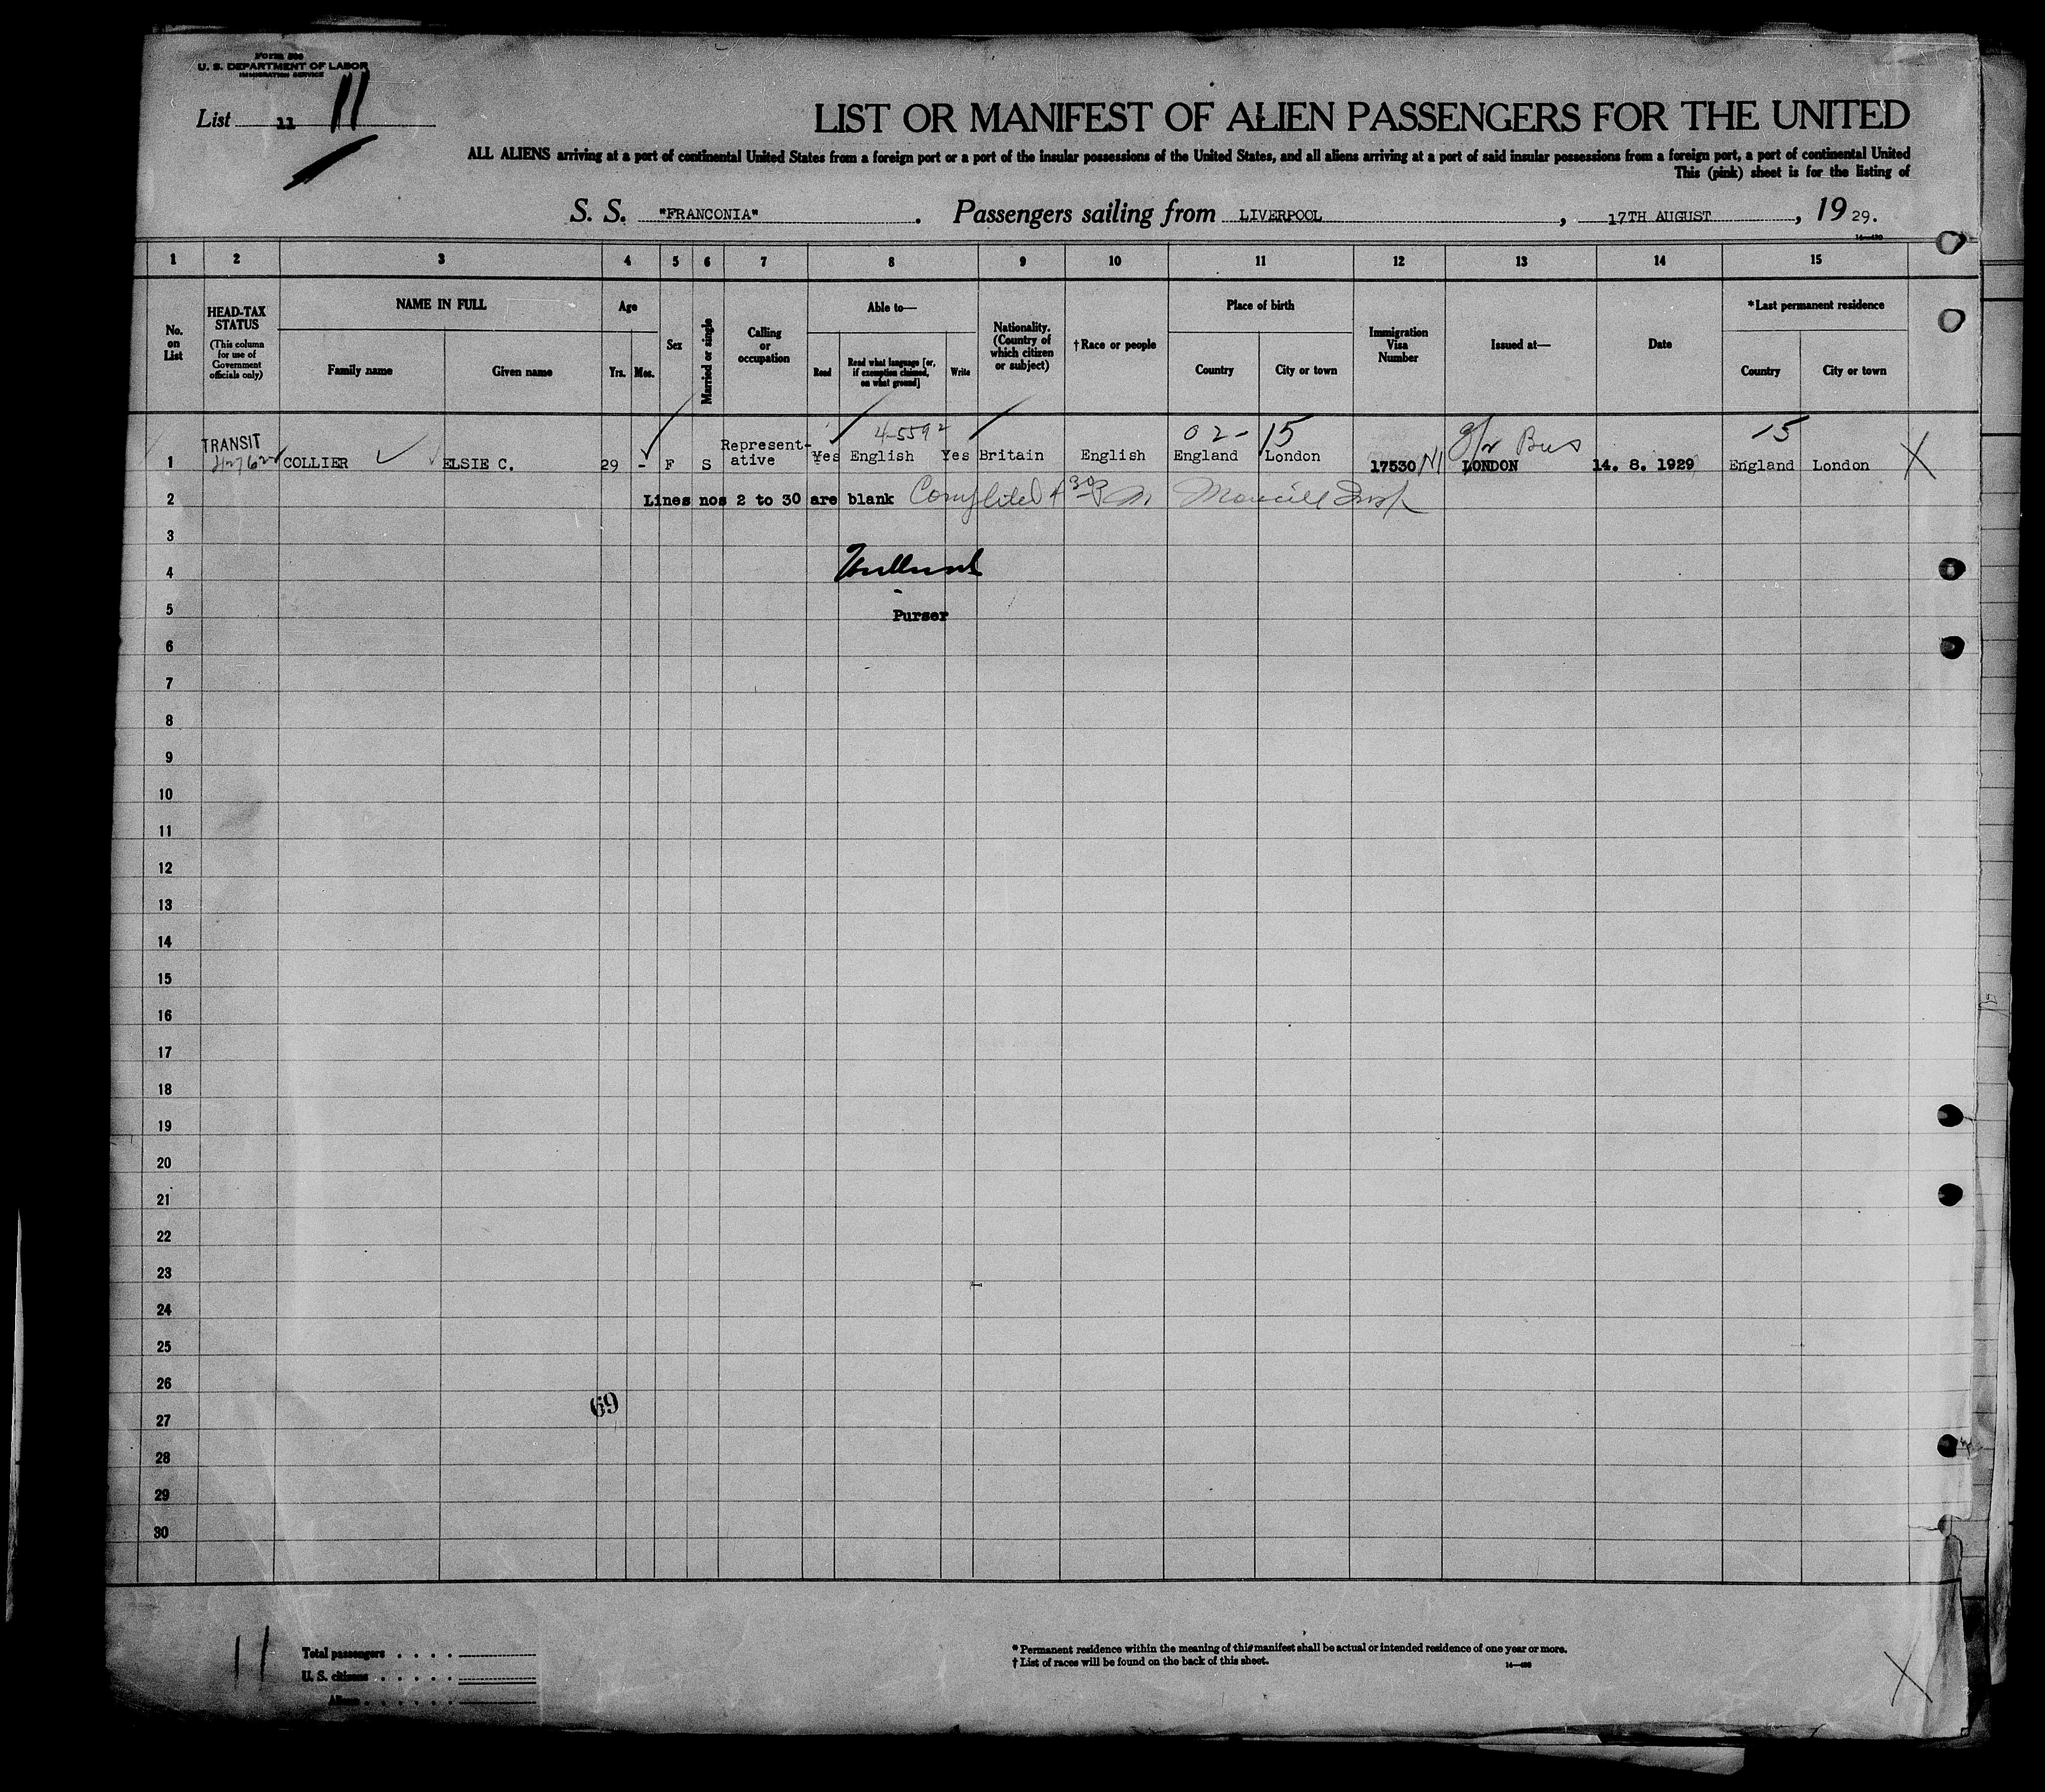 Form 500
U. S. DEPARTMENT OF LABOR
IMMIGRATION SERVICE
List 11 11
LIST OR MANIFEST OF ALIEN PASSENGERS FOR THE UNITED
ALL ALIENS arriving at a port of continental United States from a foreign port or a port of the insular possessions of the United States, and all aliens arriving at a port of said insular possessions from a foreign port, a port of continental United
This (pink) sheet is for the listing of
S. S. "FRANCONIA". Passengers sailing from LIVERPOOL, 17TH AUGUST, 19 29.
1 2 3 4 5 6 7 8 9 10 11 12 13 14 15
No. on List
HEAD-TAX STATUS
(This column for use of Government officials only)
NAME IN FULL
Family name Given name
Age
Yrs. Mos.
Sex
Married or single
Calling or occupation
Able to—
Read Read what language [or, if exemption claimed, on what ground] Write
Nationality. (Country of which citizen or subject)
†Race or people
Place of birth
Country City or town
Immigration Visa Number
Issued at—
Date
*Last permanent residence
Country City or town
TRANSIT 02- 15 Bus 15
1 COLLIER ELSIE C. 29 - F S Represent-ative Yes English Yes Britain English England London 17530 LONDON 14. 8. 1929 England London X
2 Lines nos 2 to 30 are blank Completed
3
4
5 Purser
6
7
8
9
10
11
12
13
14
15
16
17
18
19
20
21
22
23
24
25
26
69
27
28
29
30
11
Total passengers
U. S. citizens
Aliens
* Permanent residence within the meaning of this manifest shall be actual or intended residence of one year or more.
† List of races will be found on the back of this sheet.
X